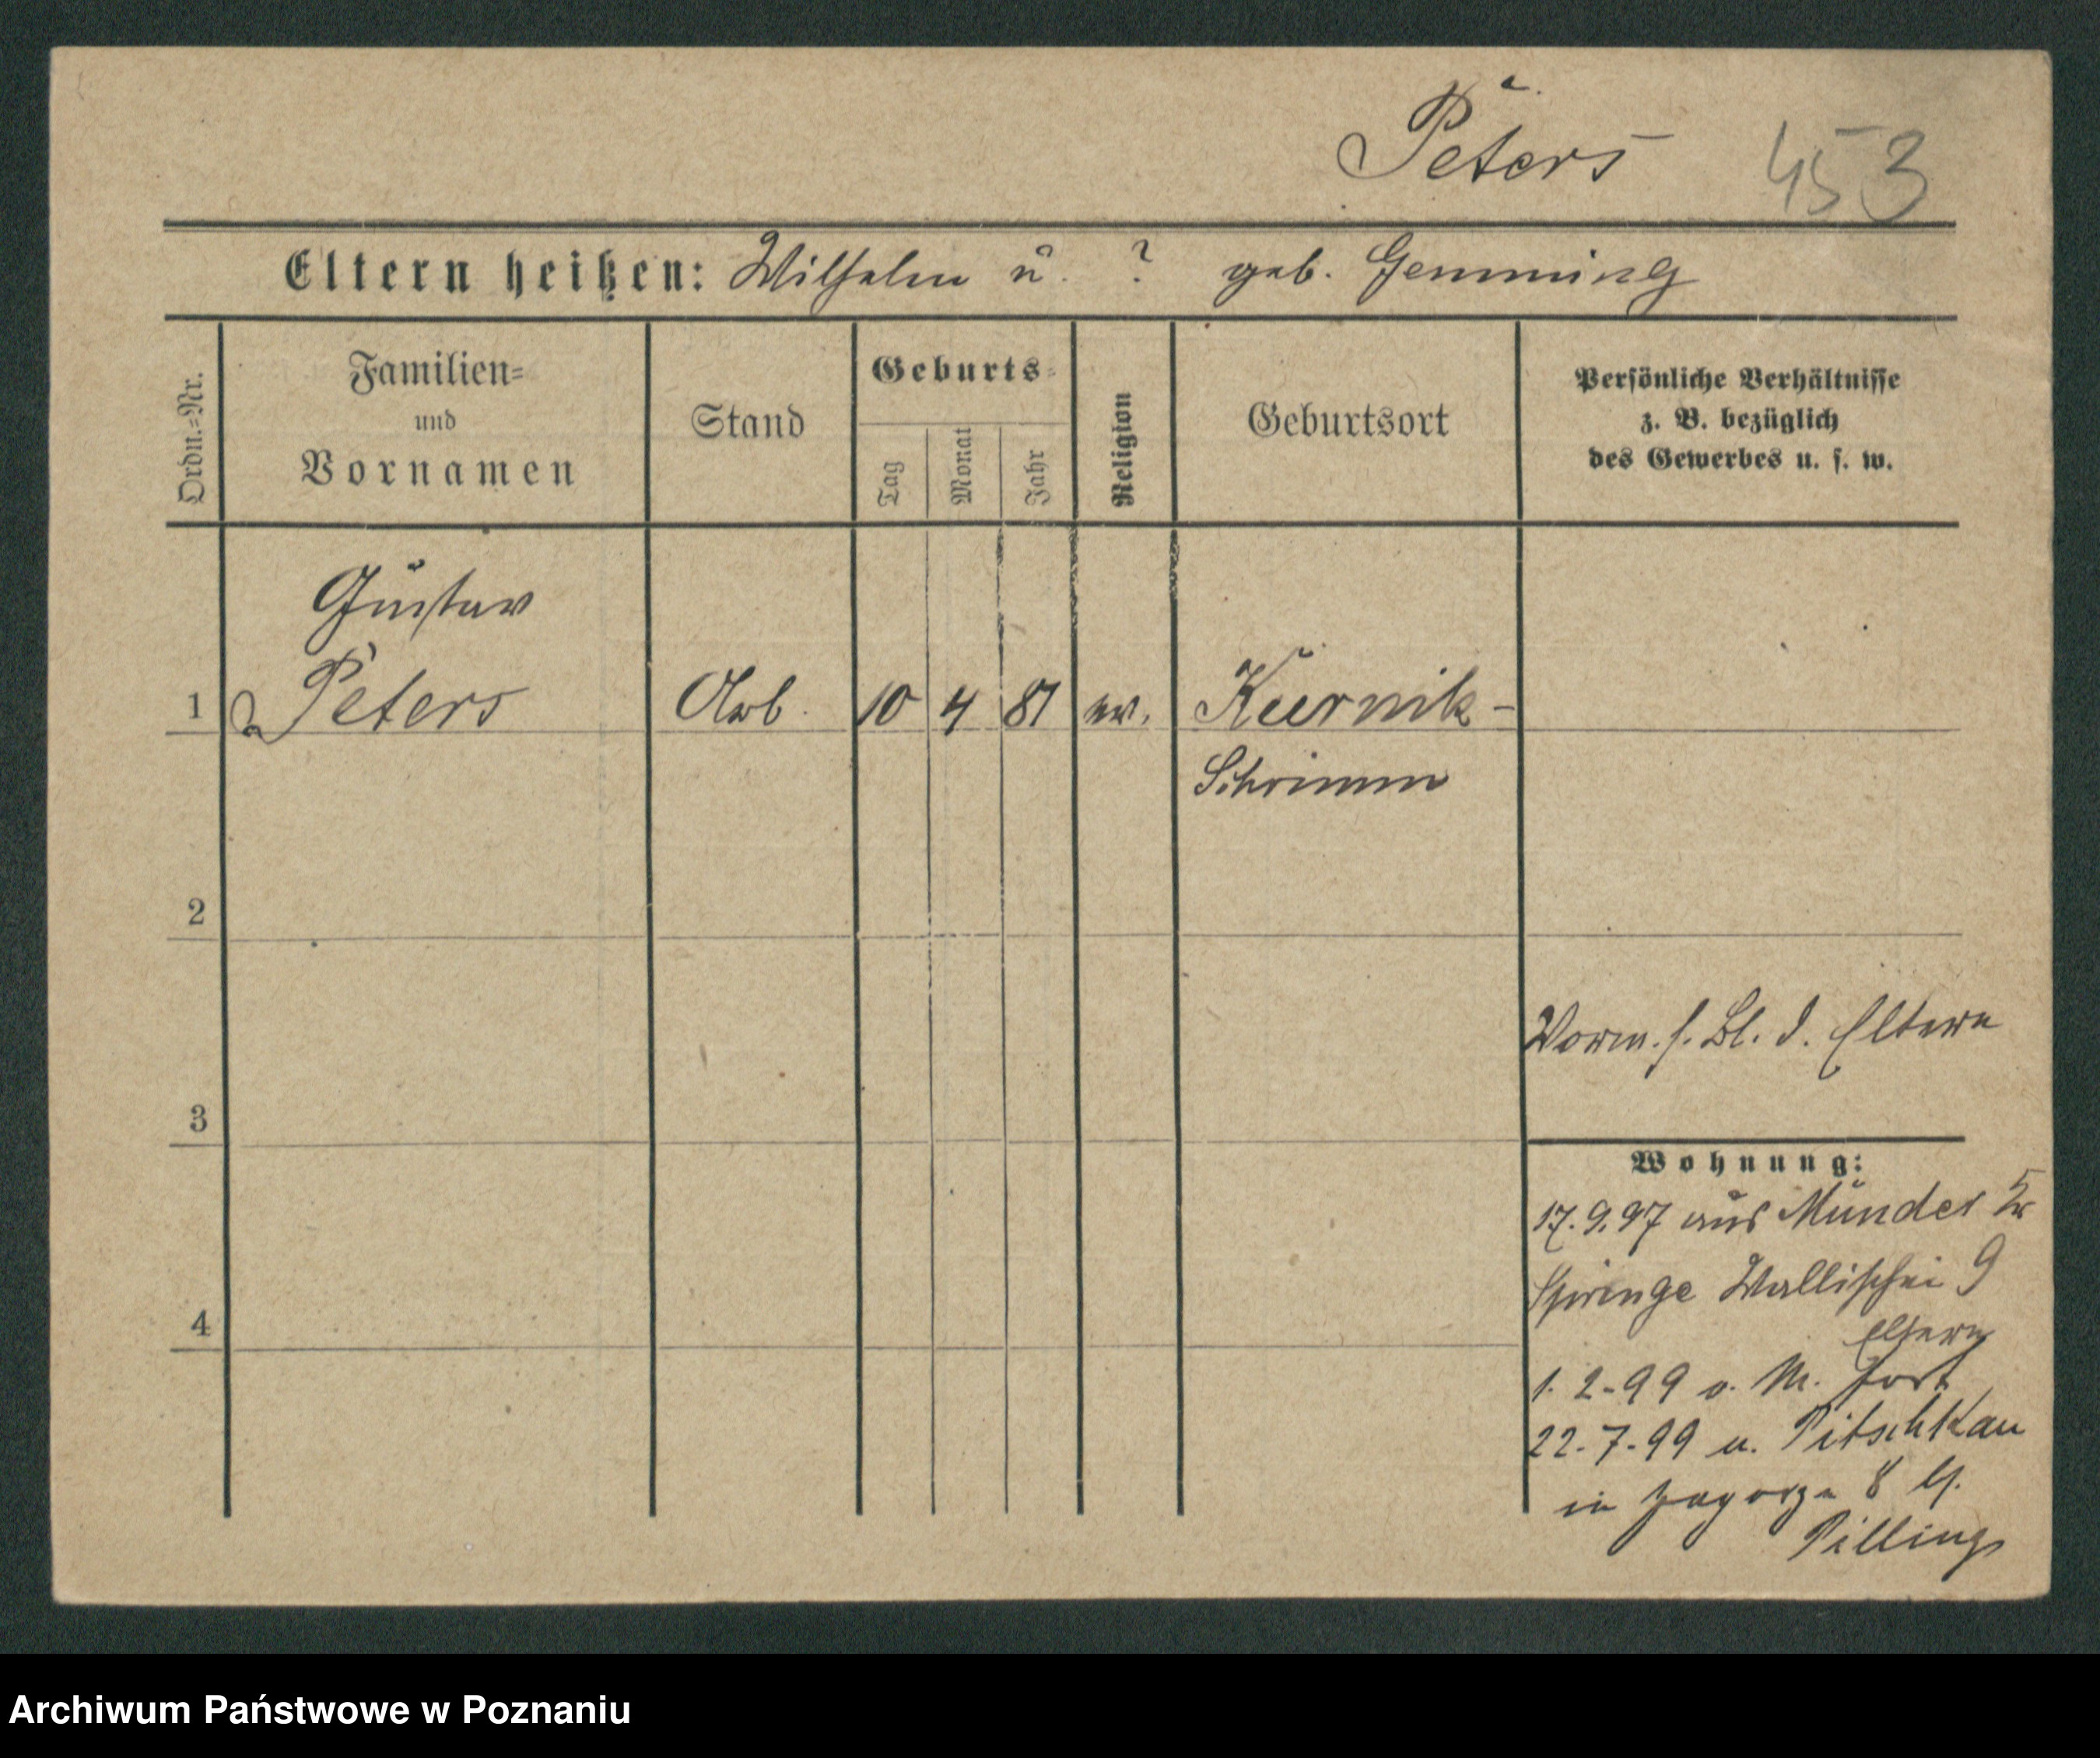 Peters 453
Eltern heißen: Wilhelm u. ? geb. Gemming
Ordn.=Nr.
Familien=
und
Vornamen
Stand
Geburts=
Tag
Monat
Jahr
Religion
Geburtsort
Persönliche Verhältnisse
z. B. bezüglich
des Gewerbes u. s. w.
Gustav
1 Peters Arb. 10 4 81 ev. Kurnik-
Schrimm
2
Vorm. s. Bl. d. Eltern
3
Wohnung:
17.9.97 aus Münder Kr
Springe Wallischei 9
4
Eltern
1. 2-99 o. M. fort
22-7-99 u. Pitschkau
in Zagorze 8
Pilling
Archiwum Państwowe w Poznaniu